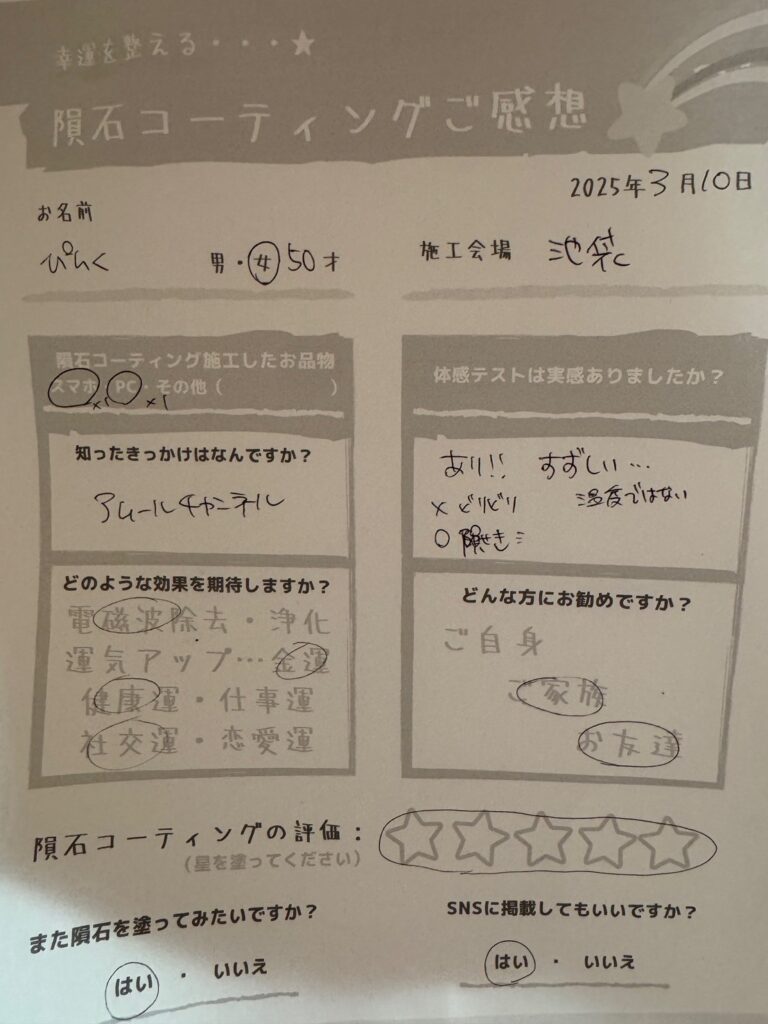 幸運を整える・・・★
隕石コーティングご感想
2025年3月10日
お名前
ぴんく 男・女 50才
施工会場 池袋
隕石コーティング施工したお品物
スマホ・PC・その他( )
×1 ×1
知ったきっかけはなんですか?
アムールチャンネル
どのような効果を期待しますか?
電磁波除去・浄化
運気アップ…金運
健康運・仕事運
社交運・恋愛運
体感テストは実感ありましたか?
あり!! すずしい…
× どりどり 温度ではない
○ 隕せき
どんな方にお勧めですか?
ご自身
ご家族
お友達
隕石コーティングの評価:☆☆☆☆☆
(星を塗ってください)
また隕石を塗ってみたいですか?
はい ・ いいえ
SNSに掲載してもいいですか?
はい ・ いいえ